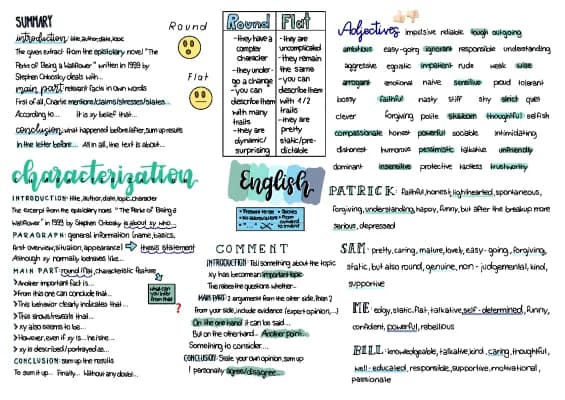 SUMMARY
introduction: title, author, date, topic
The given extract from the epistolary novel "The
Perks of Being a Wallflower" written in 1999 by
Stephen Chbosky deals with...
main part: relevant facts in own words
First of all, Charlie mentions/claims/stresses/states...
According to... it is xy belief that...
conclusion: what happened before/after, sum up results
In the letter before... All in all, the text is about...
Round
Flat
Round
-they have a
complex
character
-they under-
go a change
-you can
describe them
with many
traits
-they are
dynamic/
surprising
Flat
-they are
uncomplicated
-they remain
the same
-you can
describe them
with 1/2
traits
-they are
pretty
static/pre-
dictable
Adjectives
impulsive reliable tough outgoing
ambitious easy-going ignorant responsible understanding
aggressive egoistic impatient rude weak wise
arrogant emotional naive sensitive proud tolerant
bossy faithful nasty stiff shy strict quiet
clever forgiving polite stubborn thoughtful selfish
compassionate honest powerful sociable intimidating
dishonest humorous pessimistic talkative unfriendly
dominant insensitive protective tactless trustworthy
characterization
INTRODUCTION: title, author, date, topic, character
The excerpt from the epistolary novel "The Perks of Being a
Wallflower" in 1999 by Stephen Chbosky is about xy who...
PARAGRAPH: general information (name, basics,
first overview, situation, appearance) thesis statement
Although xy normally behaves like...
MAIN PART: round/flat, characteristic feature
>Another important fact is...
>From this one can conclude that...
>This behavior clearly indicates that...
>This shows/reveals that...
>xy also seems to be...
>However, even if xy is... he/she...
>xy is described/portrayed as...
CONCLUSION: sum up the results
To sum it up... Finally... Without any doubt...
what can
you infer
from that
?
English
COMMENT
INTRODUCTION: Tell something about the topic
xy has become an important topic
This raises the question whether...
MAIN PART: 2 arguments from the other side, then 2
from your side, include evidence (expert opinion,...)
On the one hand it can be said...
But on the other hand... Another point...
Something to consider...
CONCLUSION: State your own opinion, sum up
I personally agree/disagree...
PATRICK: faithful, honest, lighthearted, spontaneous,
forgiving, understanding, happy, funny, but after the breakup more
serious, depressed
SAM: pretty, caring, mature, lovely, easy-going, forgiving,
static, but also round, genuine, non-judgemental, kind,
supportive
ME: edgy, static, flat, talkative, self-determined, funny,
confident, powerful, rebellious
BILL: knowledgeable, talkative, kind, caring, thoughtful,
well-educated, responsible, supportive, motivational,
passionate